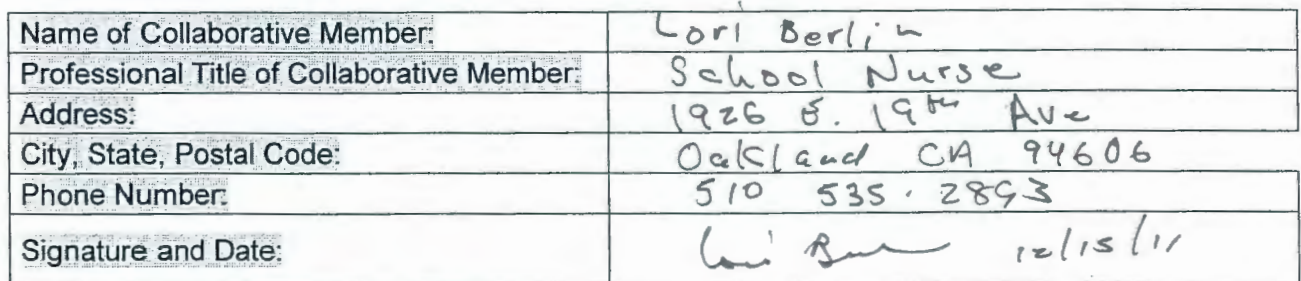 Name of Collaborative Member: Lori Berlin
Professional Title of Collaborative Member: School Nurse
Address: 1926 E. 19th Ave
City, State, Postal Code: Oakland CA 94606
Phone Number: 510 535 · 2893
Signature and Date: Lori 12/15/11